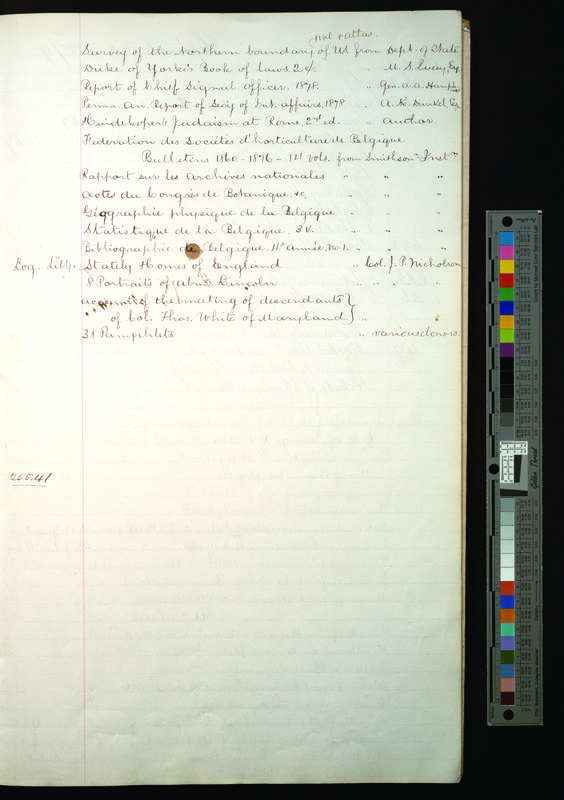 1 vol & Atlas.
Survey of the Northern boundary of US from Dept. of State
Duke of Yorke's Book of laws 2 " M. S. Quay, Esq
Report of Chief Signal Officer. 1878. " Gen. A. A. Humphreys
Penna. An. Report of Sec'y of Int. affairs, 1878 " A. K. Dunkel, Esq
Huidekoper's Judaism at Rome, 2nd ed. " Author.
Federation des Societés d'horticulture de Belgique
Bulletins 1860-1876 - 14 vols. from Smithson. Instn
Rapport sur les Archives nationales " " "
Actes du Congrés de Botanique &c, " " "
Géographie physique de la Belgique " " "
Statistique de la Belgique. 3 v. " " "
Bibliographie de Belgique. 4e Année, No. 1. " " "
Log. Liby. Stately Homes of England " Col. J. P. Nicholson
8 Portraits of Abm. Lincoln " " " "
Account of the meeting of descendants }
of Col. Thos. White of Maryland } "
31 Pamphlets " various donors.
255.41
Golden Thread